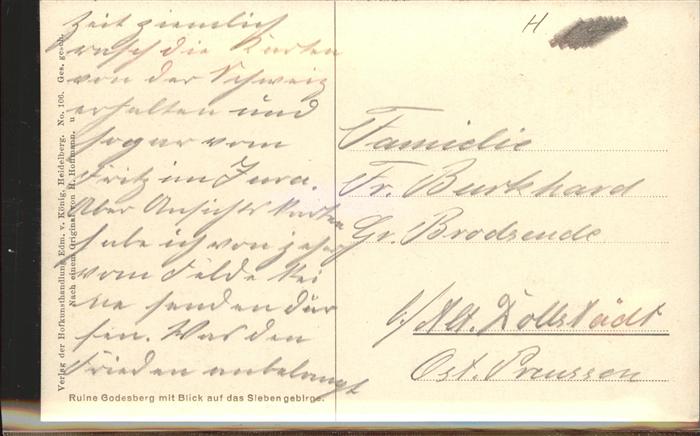 Zeit ziemlich
rasch die Karten
von der Schweiz
erhalten und
sogar vom
Fritz im Jura.
Aber Ansichtskarten
habe ich von jeher
vom Felde kei
ne senden dür
fen. Was den
Frieden anbelangt
H
Familie
Fr. Burkhard
Gr. Brodsende
b/ Alt. Dollstädt
Ost. Preussen
Verlag der Hofkunsthandlung Edm. v. König, Heidelberg. No. 106. Ges. gesch.
Nach einem Original von H. Hoffmann. u
Ruine Godesberg mit Blick auf das Siebengebirge.